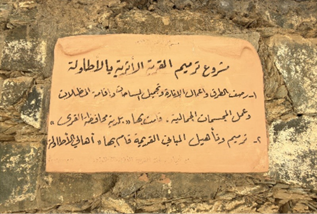 مشروع ترميم القرية الأثرية بالأطاولة
١- رصف الطرق وأعمال الإنارة وتجميل الساحات وإقامة المظلات
وعمل المجسمات الجمالية، قامت بها، بلدية محافظة القرى،
٢- ترميم وتأهيل المباني القديمة قام بها، أهالي الأطاولة